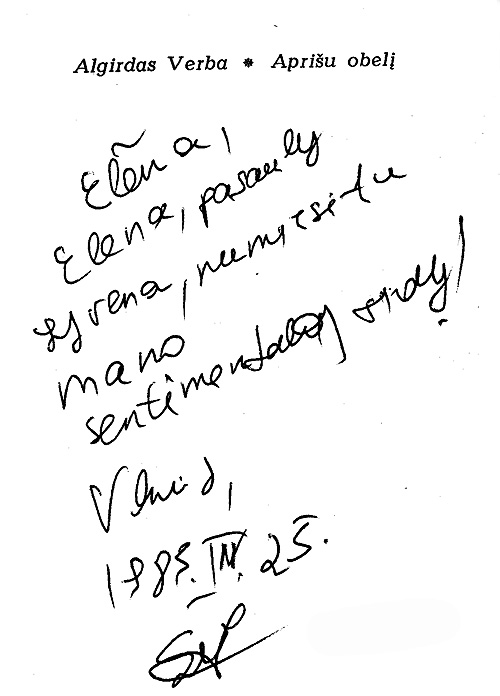 Algirdas Verba * Aprišu obelį
Elena,
Elena, pasauly
gyvena, numirsi tu
mano
sentimentalioj širdy!
Vilnius,
1985. IV. 25.